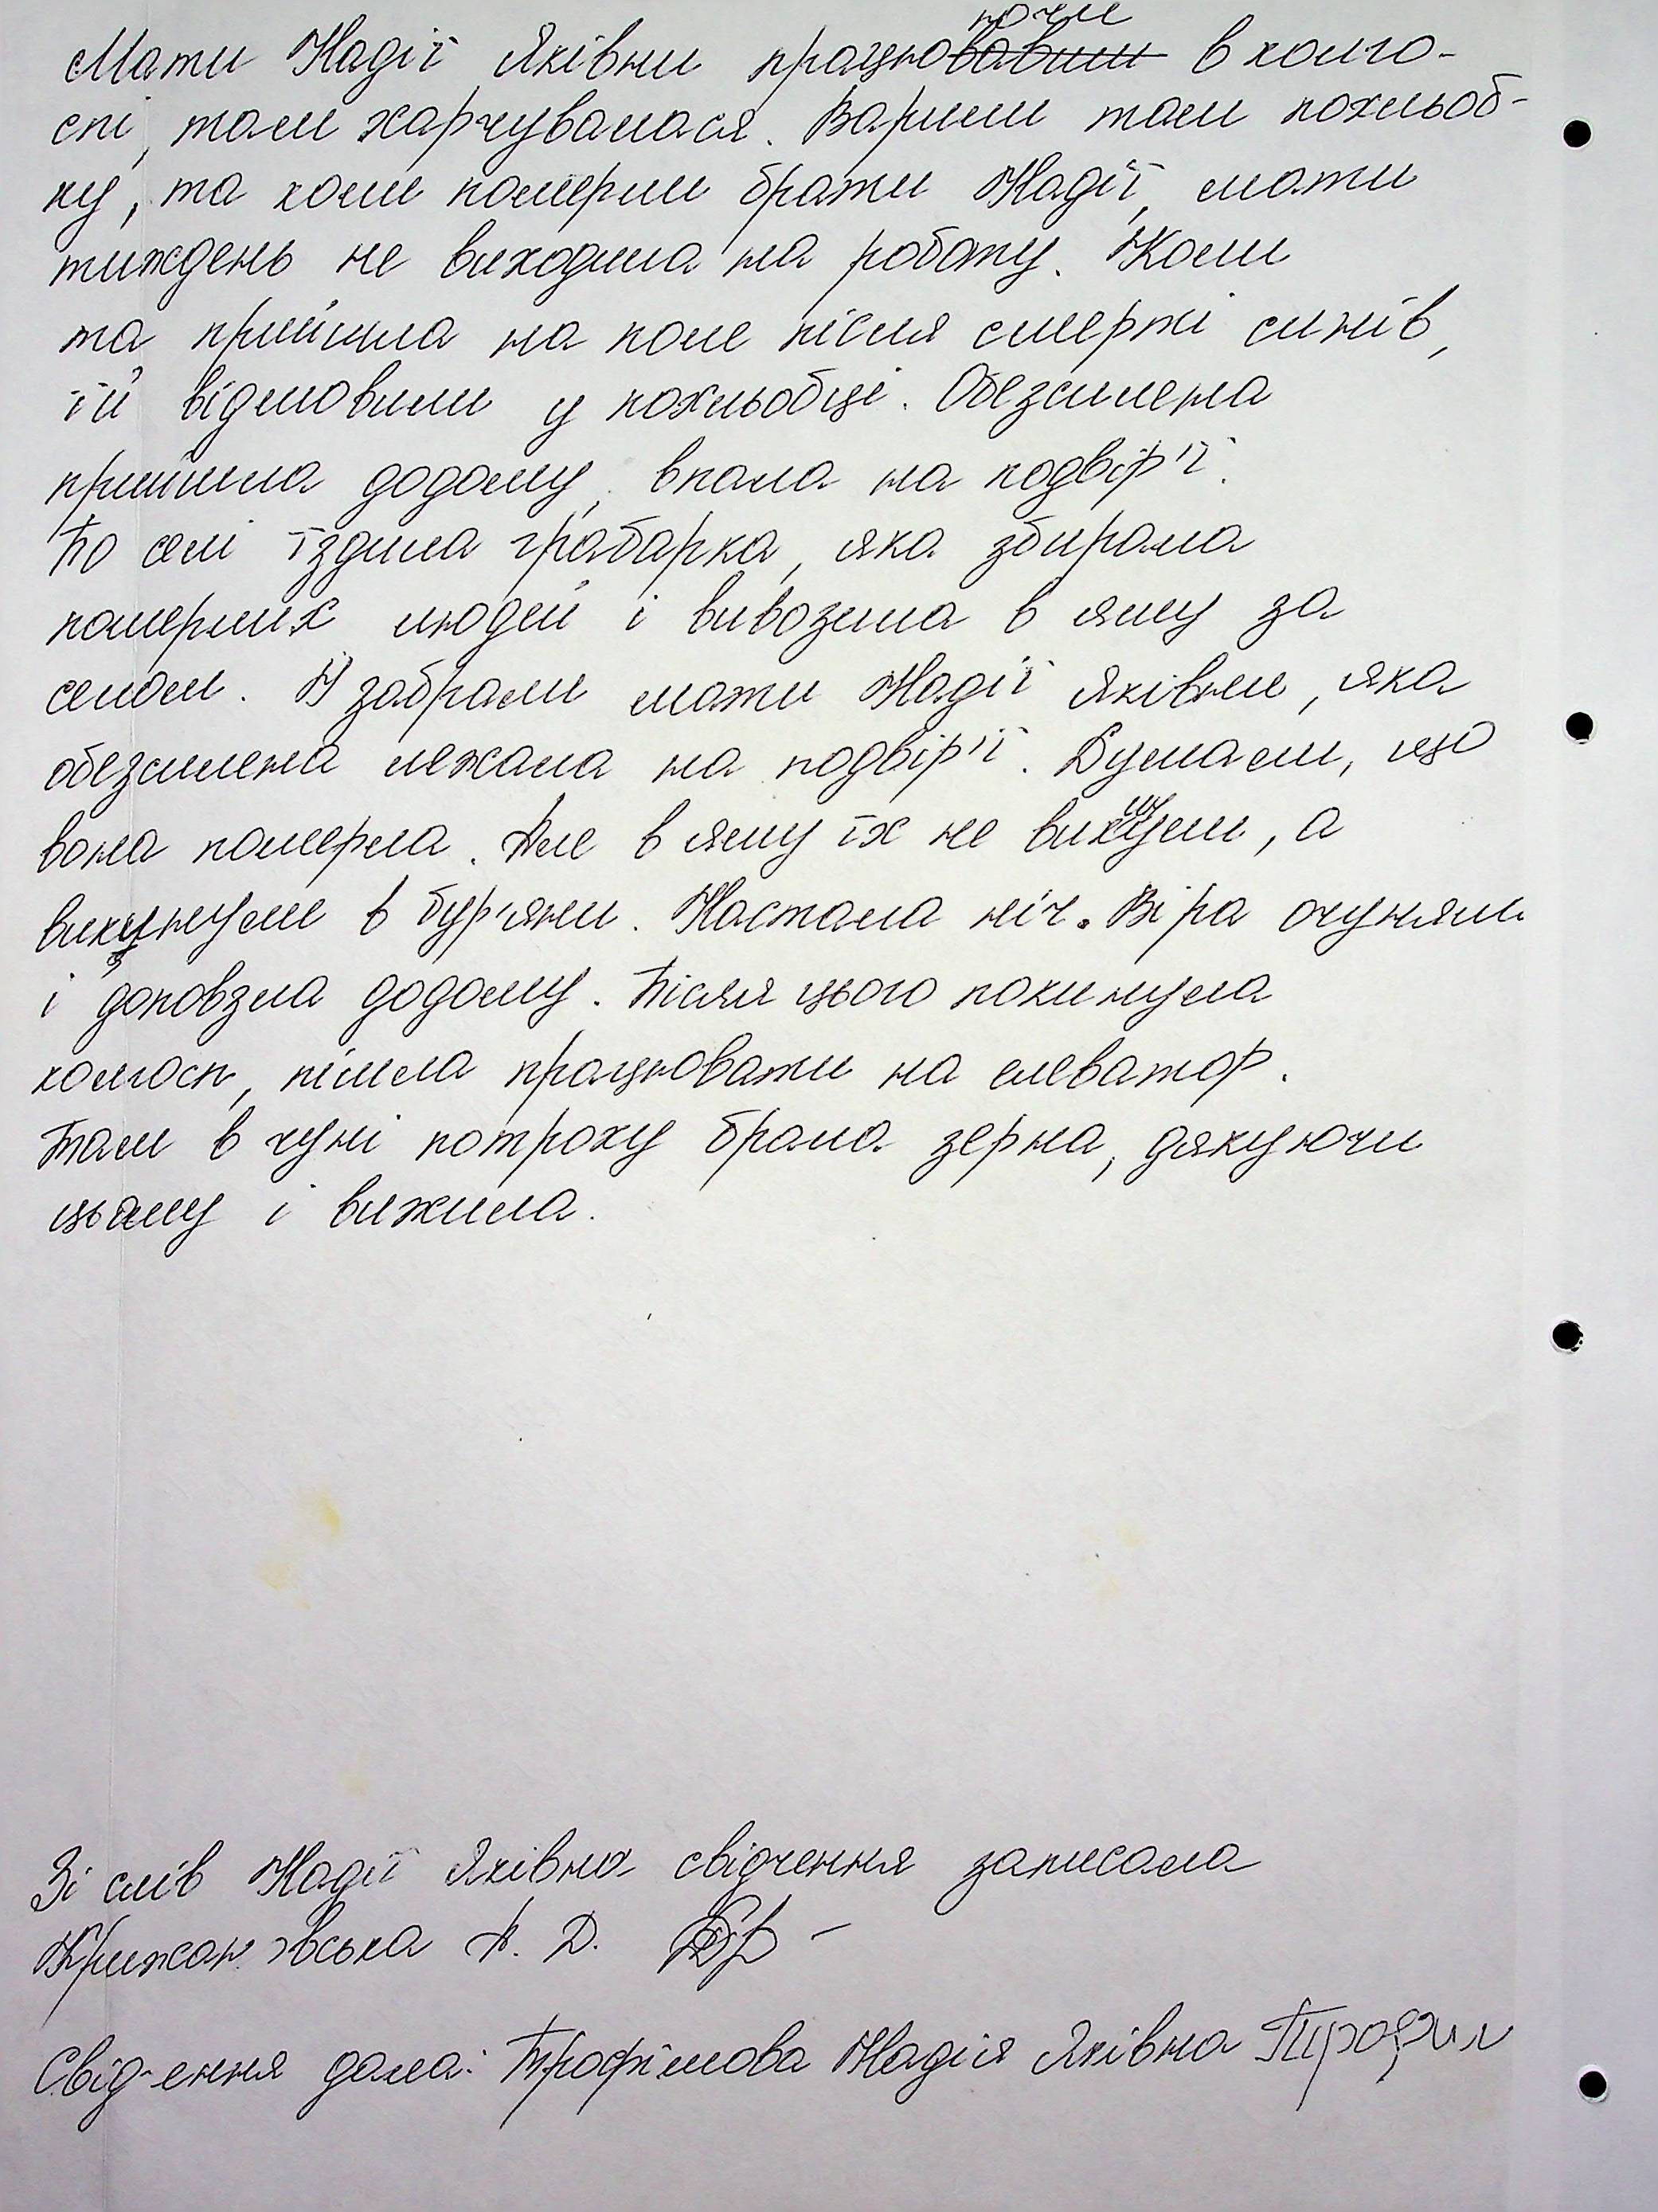 Мати Надії Яківни працюючи в колго-
спі, там харчувалася. Варили там похльоб-
ку, та коли померли брати Надії, мати
тиждень не виходила на роботу. Коли
та прийшла на поле після смерті синів,
їй відмовили у похльобці. Обезсилена
прийшла додому, впала на подвір'ї.
По селі їздила грабарка, яка збирала
померлих людей і вивозила в яму за
селом. Й забрали мати Надії Яківни, яка
обезсилена лежала на подвір'ї. Думали, що
вона померла. Але в яму їх не вкинули, а
викинули в бур'яни. Настала ніч. Віра очуняли
і доповзла додому. Після цього покинула
колгосп, пішла працювати на елеватор.
Там в чуні потроху брала зерна, дякуючи
цьому і вижила.
Зі слів Надії Яківни свідчення записала
Крижановська А. Д.
Свідчення дала: Трофімова Надія Яківна Трофим